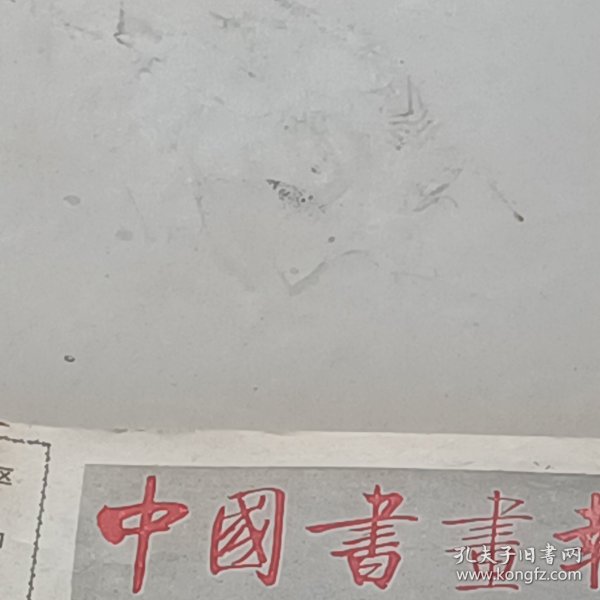 中國書畫報
孔夫子旧书网
www.kongfz.com